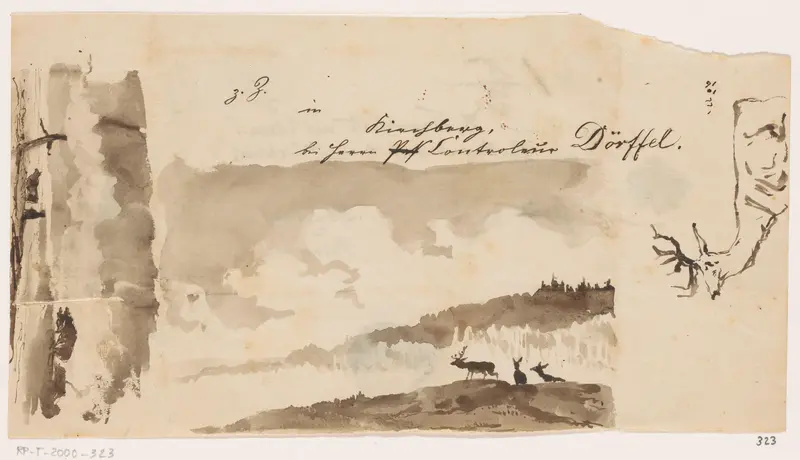 z. Z.
in
Kirchberg,
bei Herrn Controleur Dörffel.
323
RP-T-2000-323